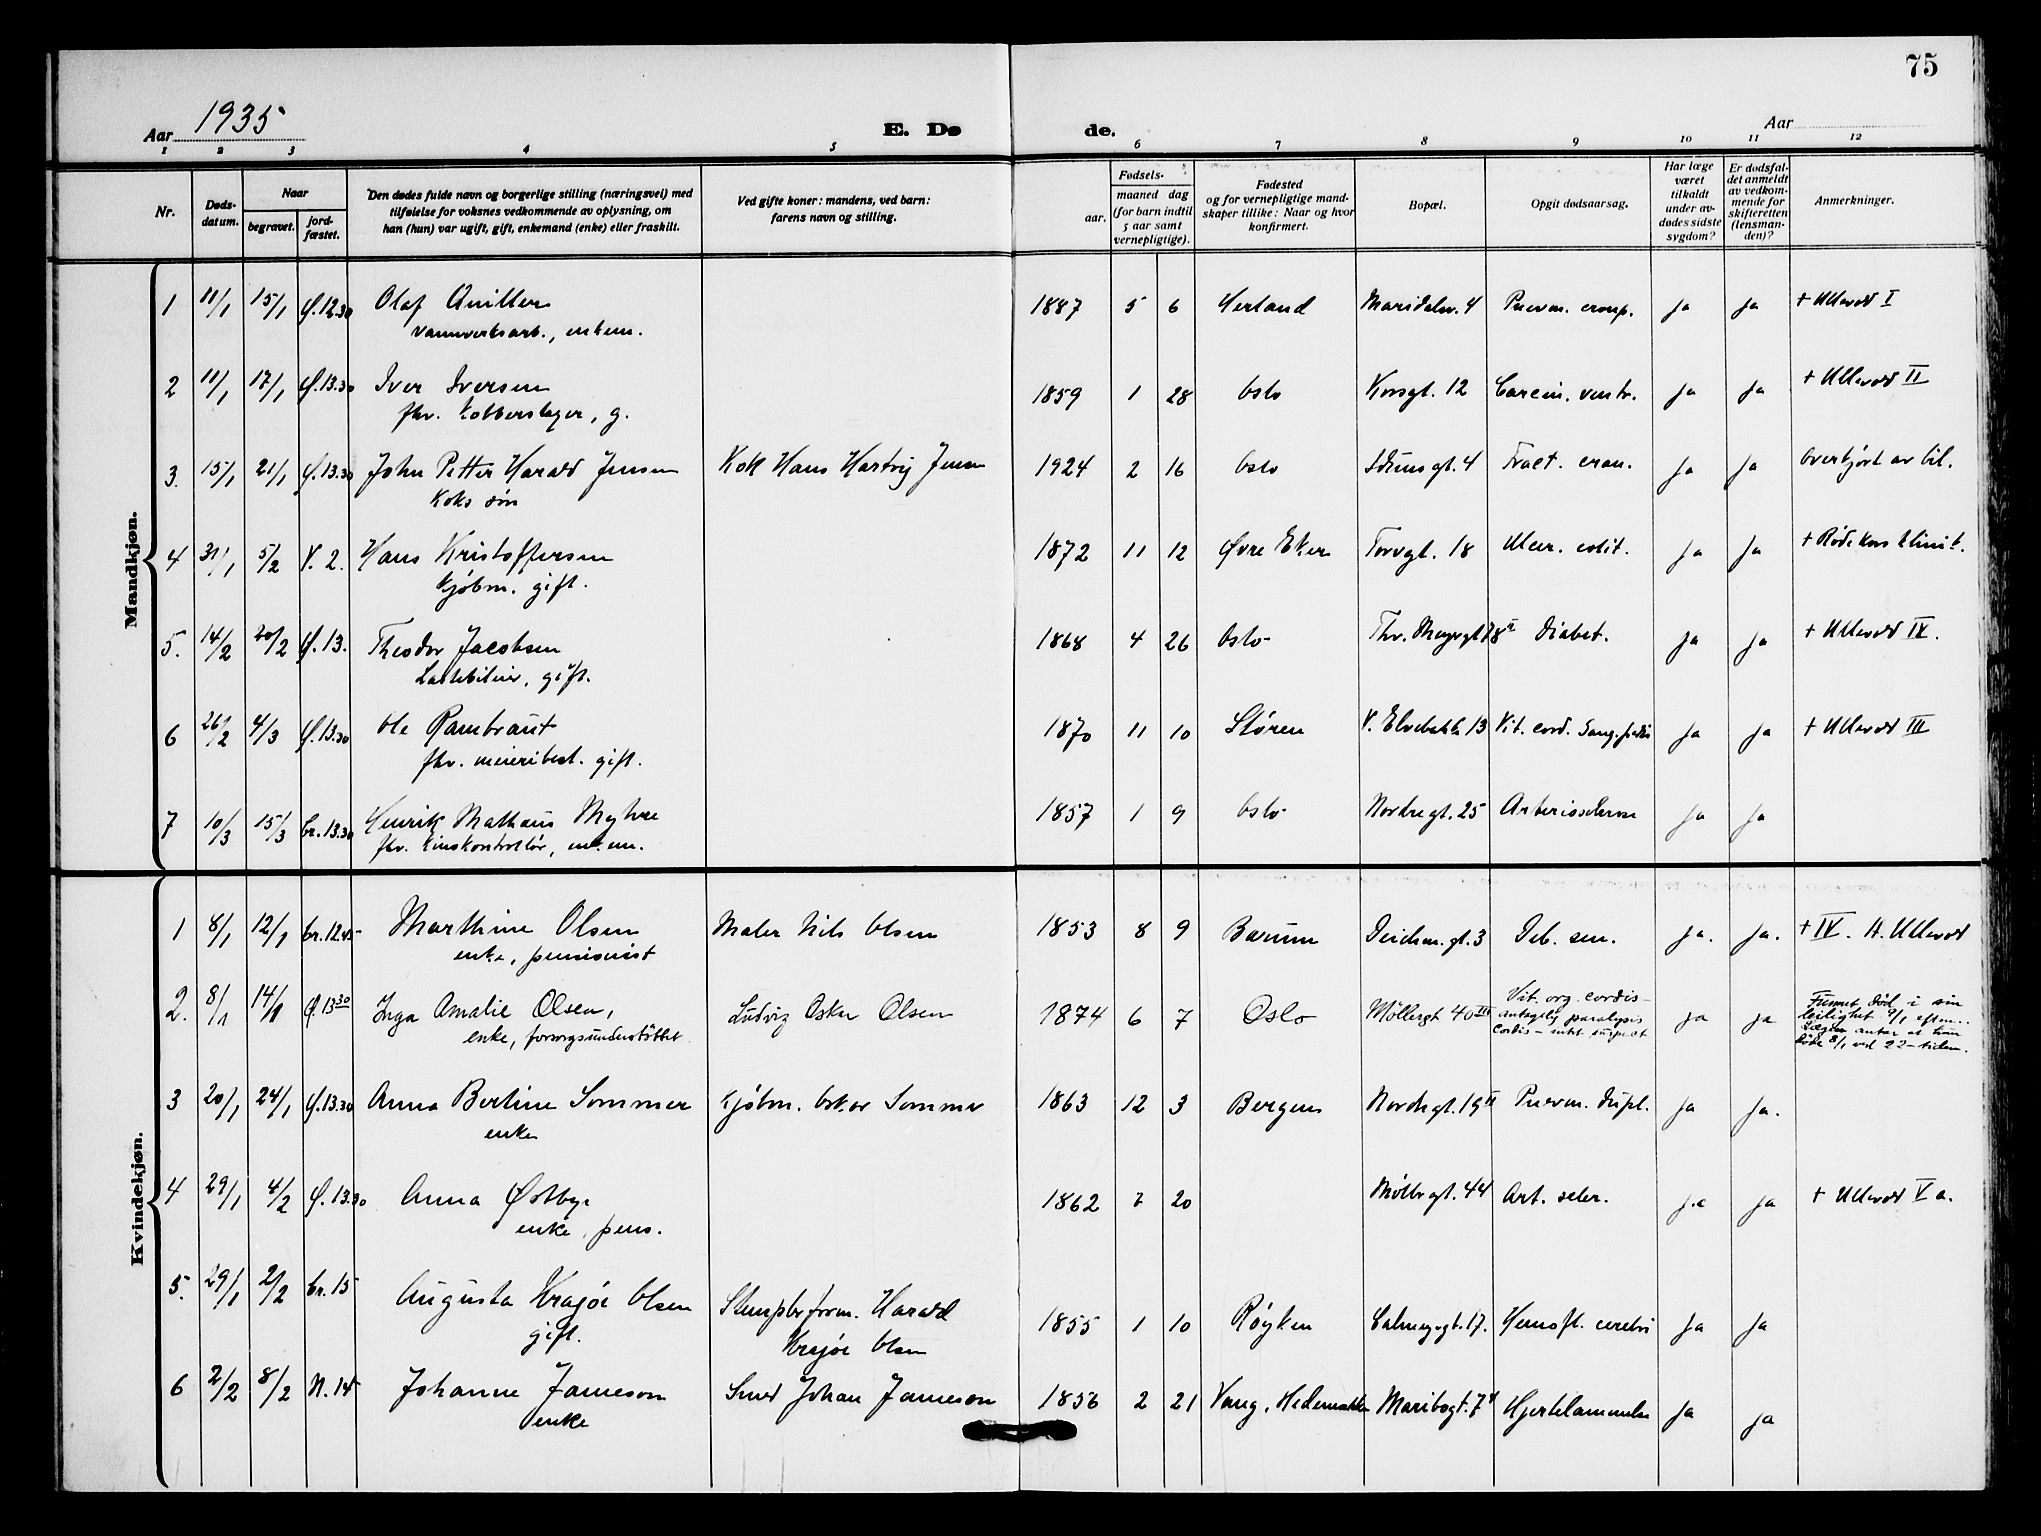 75
Aar 1935
E. Dø
de.
Aar
1 2 3 4 5 6 7 8 9 10 11 12
Nr.
Døds-
datum.
Naar
begravet.
jord-
fæstet.
Den dødes fulde navn og borgerlige stilling (næringsvei) med
tilføielse for voksnes vedkommende av oplysning, om
han (hun) var ugift, gift, enkemand (enke) eller fraskilt.
Ved gifte koner: mandens, ved barn:
farens navn og stilling.
Fødsels-
aar.
maaned dag
(for barn indtil
5 aar samt
vernepligtige).
Fødested
og for vernepligtige mand-
skaper tillike: Naar og hvor
konfirmert.
Bopæl.
Opgit dødsaarsag.
Har læge
været
tilkaldt
under av-
dødes sidste
sygdom?
Er dødsfal-
det anmeldt
av vedkom-
mende for
skifteretten
(lensman-
den)?
Anmerkninger.
Mandkjøn.
1 11/1 15/1 Ø. 12.30 Olaf 1887 5 6 Maridalsv. 4 Pnevm. croup. ja ja + Ullevål I
vannverksarb., enkem.
2 11/1 17/1 Ø. 13.30 Iver Iversen 1859 1 28 Oslo Korsgt. 12 Carcin. ventr. ja ja + Ullevål II
fhv. kobberslager, g.
3. 15/1 21/1 Ø. 13.30 John Petter Harald Jensen Kok Hans Hartvig Jensen 1924 2 16 Oslo Idunsgt. 4 Fract. cran. ja ja Overkjørt av bil.
Koks søn
4 31/1 5/2 V. 2. Hans Kristoffersen 1872 11 12 Øvre Eker Torvgt. 18 Ulcer. colit. ja ja + Røde Kors klinik.
Kjøbm. gift.
5. 14/2 20/2 Ø. 13. Theodor Jacobsen 1868 4 26 Oslo Thv. Meyersgt 78 Diabet. ja ja + Ullevål IX.
Lastebileier, gift.
6 26/2 4/3 Ø. 13.30 Ole Rambraut 1870 11 10 Støren V. Elvebakke 13 Vit. cord. ja ja + Ullevål III
fhv. meieribest. gift.
7 10/3 15/3 br. 13.30 Henrik Mathæus Myhre 1857 1 9 Oslo Nordregt. 25 Arteriosclerose ja ja
fhv. kinokontrollør, enkem.
Kvindekjøn.
1 8/1 12/1 br. 12.45 Marthine Olsen Maler Nils Olsen 1853 8 9 Bærum Deichm. gt. 3 Deb. sen. ja. ja. + IV. A. Ullevål
enke, pensionist
2. 8/1 14/1 Ø. 13 30 Inga Amalie Olsen, Ludvig Oskar Olsen 1874 6 7 Oslo Möllergt 40 III Vit. org. cordis - ja ja Funnet død i sin
enke, forsorgsunderstöttet antagelig paralysis leilighet 9/1 efterm.
cordis - intet suspect Lægen antar at hun
døde 8/1 ved 22-tiden.
3 20/1 24/1 Ø. 13.30 Anna Bertine Sommer Kjøbm. Oskar Sommer 1863 12 3 Bergen Nordregt. 19 II Pnevm. dupl. ja ja.
enke
4 29/1 4/2 Ø. 13.30 Anna Østbye 1862 20 Møllergt. 44 Art. scler. ja ja + Ullevål V a.
enke, pens.
5. 29/1 2/2 br. 15 Augusta Kragøe Olsen Stemplerform. Harald 1855 1 10 Røyken Calmeyergt. 17. Hemoft. cerebri ja ja
gift. Kragøe Olsen
6 2/2 8/2 N. 14 Johanne Jameson Smed Johan Jameson 1856 2 21 Vang, Hedemarken Maribogt. 7 Hjertelammelse ja ja
enke